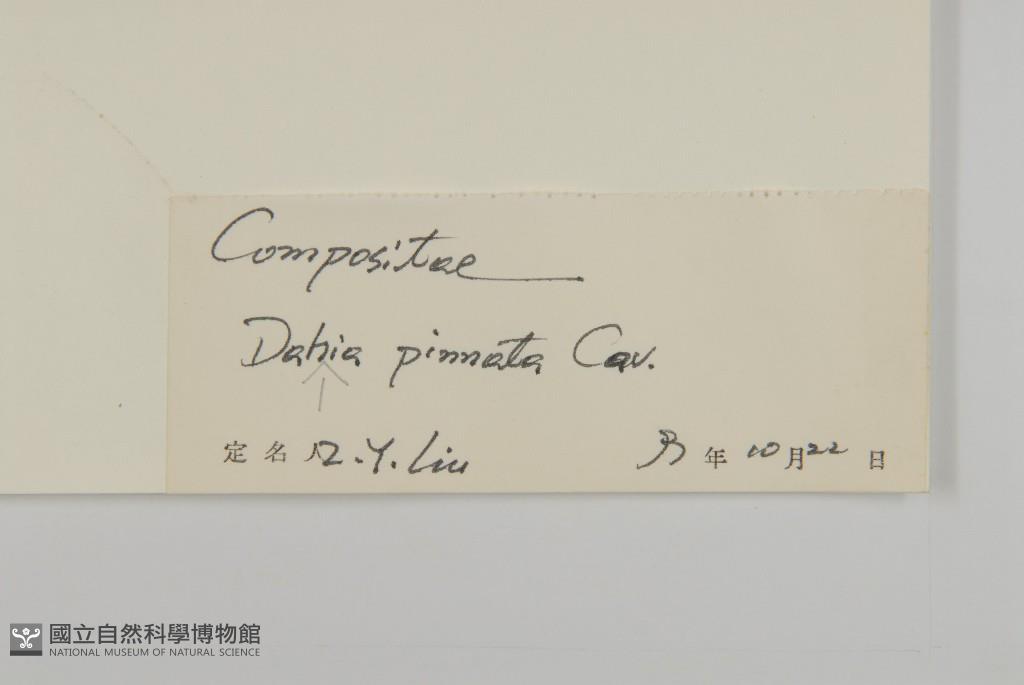 Compositae
Dahia pinnata Cav.
定名人 Z.Y. Liu 年 10月22日
國立自然科學博物館
NATIONAL MUSEUM OF NATURAL SCIENCE